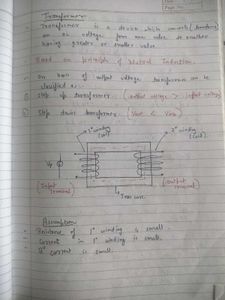 Transformer
Transformer is a device which converts (transform)
an ac voltage from one value to another
having greater or smaller value.
Based on principle of Mutual Induction.
on basis of output voltage transformer can be
classified as
Step up transformer (output voltage > input voltage)
Step down transformer (Vout < Vin)
1° winding
(coil)
2° winding
(coil)
(Input
terminal)
(output
terminal)
Iron core.
Assumption
Resistance of 1° winding is small.
Current in 1° winding is small.
2° current is small.